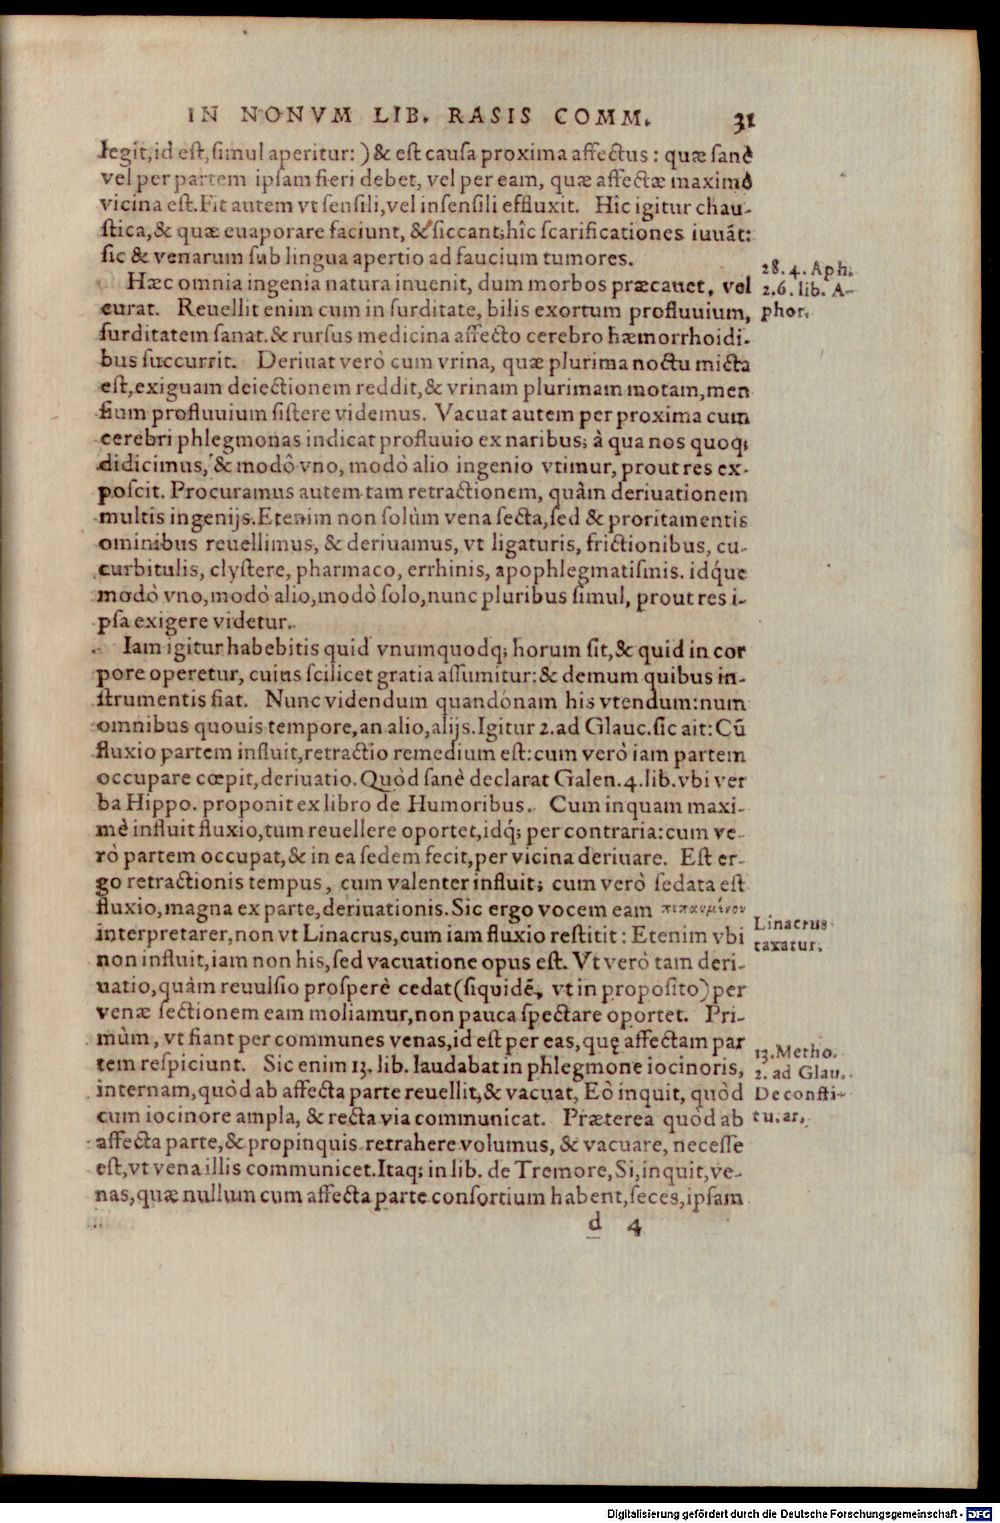 IN NONVM LIB. RASIS COMM. 31
legit, id est, simul aperitur: ) & est causa proxima affectus: quæ sanè
vel per partem ipsam fieri debet, vel per eam, quæ affectæ maximè
vicina est. Fit autem vt sensili, vel insensili effluxit. Hic igitur chau-
stica, & quæ euaporare faciunt, & siccant; hîc scarificationes iuuāt:
sic & venarum sub lingua apertio ad faucium tumores.
Hæc omnia ingenia natura inuenit, dum morbos præcauet, vel
curat. Reuellit enim cum in surditate, bilis exortum profluuium,
surditatem sanat. & rursus medicina affecto cerebro hæmorrhoidi-
bus succurrit. Deriuat verò cum vrina, quæ plurima noctu micta
est, exiguam deiectionem reddit, & vrinam plurimam motam, men
sium profluuium sistere videmus. Vacuat autem per proxima cum
cerebri phlegmonas indicat profluuio ex naribus; à qua nos quoq;
didicimus, & modò vno, modò alio ingenio vtimur, prout res ex-
poscit. Procuramus autem tam retractionem, quàm deriuationem
multis ingenijs. Etenim non solùm vena secta, sed & proritamentis
ominibus reuellimus, & deriuamus, vt ligaturis, frictionibus, cu-
curbitulis, clystere, pharmaco, errhinis, apophlegmatismis. idq́ue
modò vno, modò alio, modò solo, nunc pluribus simul, prout res i-
psa exigere videtur.
Iam igitur habebitis quid vnumquodq; horum sit, & quid in cor
pore operetur, cuius scilicet gratia assumitur: & demum quibus in-
strumentis fiat. Nunc videndum quandónam his vtendum: num
omnibus quouis tempore, an alio, alijs. Igitur 2. ad Glauc. sic ait: Cū
fluxio partem influit, retractio remedium est: cum verò iam partem
occupare cœpit, deriuatio. Quòd sanè declarat Galen. 4. lib. vbi ver
ba Hippo. proponit ex libro de Humoribus. Cum inquam maxi-
mè influit fluxio, tum reuellere oportet, idq́; per contraria: cum ve-
rò partem occupat, & in ea sedem fecit, per vicina deriuare. Est er-
go retractionis tempus, cum valenter influit; cum verò sedata est
fluxio, magna ex parte, deriuationis. Sic ergo vocem eam πεπαυμένον
interpretarer, non vt Linacrus, cum iam fluxio restitit: Etenim vbi
non influit, iam non his, sed vacuatione opus est. Vt verò tam deri-
uatio, quàm reuulsio prosperè cedat (siquidē, vt in proposito) per
venæ sectionem eam moliamur, non pauca spectare oportet. Pri-
mùm, vt fiant per communes venas, id est per eas, quę affectam par
tem respiciunt. Sic enim 13. lib. laudabat in phlegmone iocinoris,
internam, quòd ab affecta parte reuellit, & vacuat, Eò inquit, quòd
cum iocinore ampla, & recta via communicat. Præterea quòd ab
affecta parte, & propinquis retrahere volumus, & vacuare, necesse
est, vt vena illis communicet. Itaq; in lib. de Tremore, Si, inquit, ve-
nas, quæ nullum cum affecta parte consortium habent, seces, ipsam
d 4
28. 4. Aph.
2. 6. lib. A-
phor.
Linacrus
taxatur.
13. Metho.
2. ad Glau.
De consti-
tu. ar.
Digitalisierung gefördert durch die Deutsche Forschungsgemeinschaft - DFG